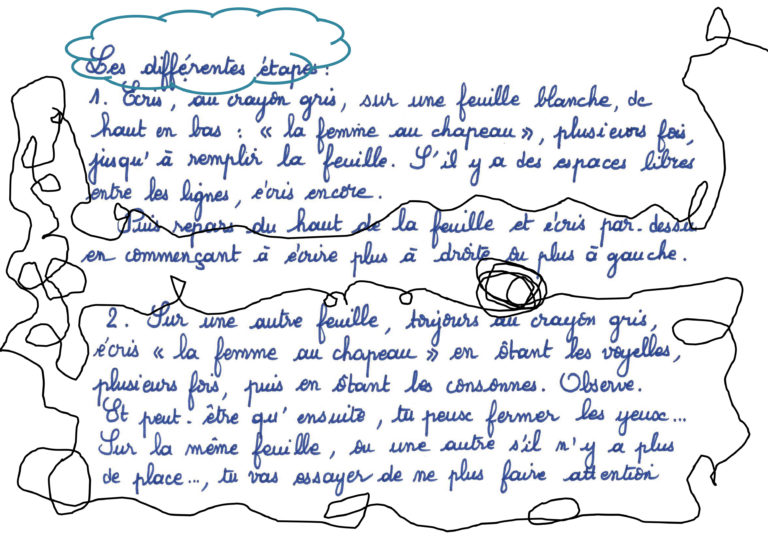 Les différentes étapes :
1. Ecris, au crayon gris, sur une feuille blanche, de
haut en bas : « la femme au chapeau », plusieurs fois,
jusqu'à remplir la feuille. S'il y a des espaces libres
entre les lignes, écris encore.
Puis repars du haut de la feuille et écris par-dessus
en commençant à écrire plus à droite ou plus à gauche.
2. Sur une autre feuille, toujours au crayon gris,
écris « la femme au chapeau » en ôtant les voyelles,
plusieurs fois, puis en ôtant les consonnes. Observe.
Et peut-être qu'ensuite, tu peux fermer les yeux...
Sur la même feuille, ou une autre s'il n'y a plus
de place..., tu vas essayer de ne plus faire attention